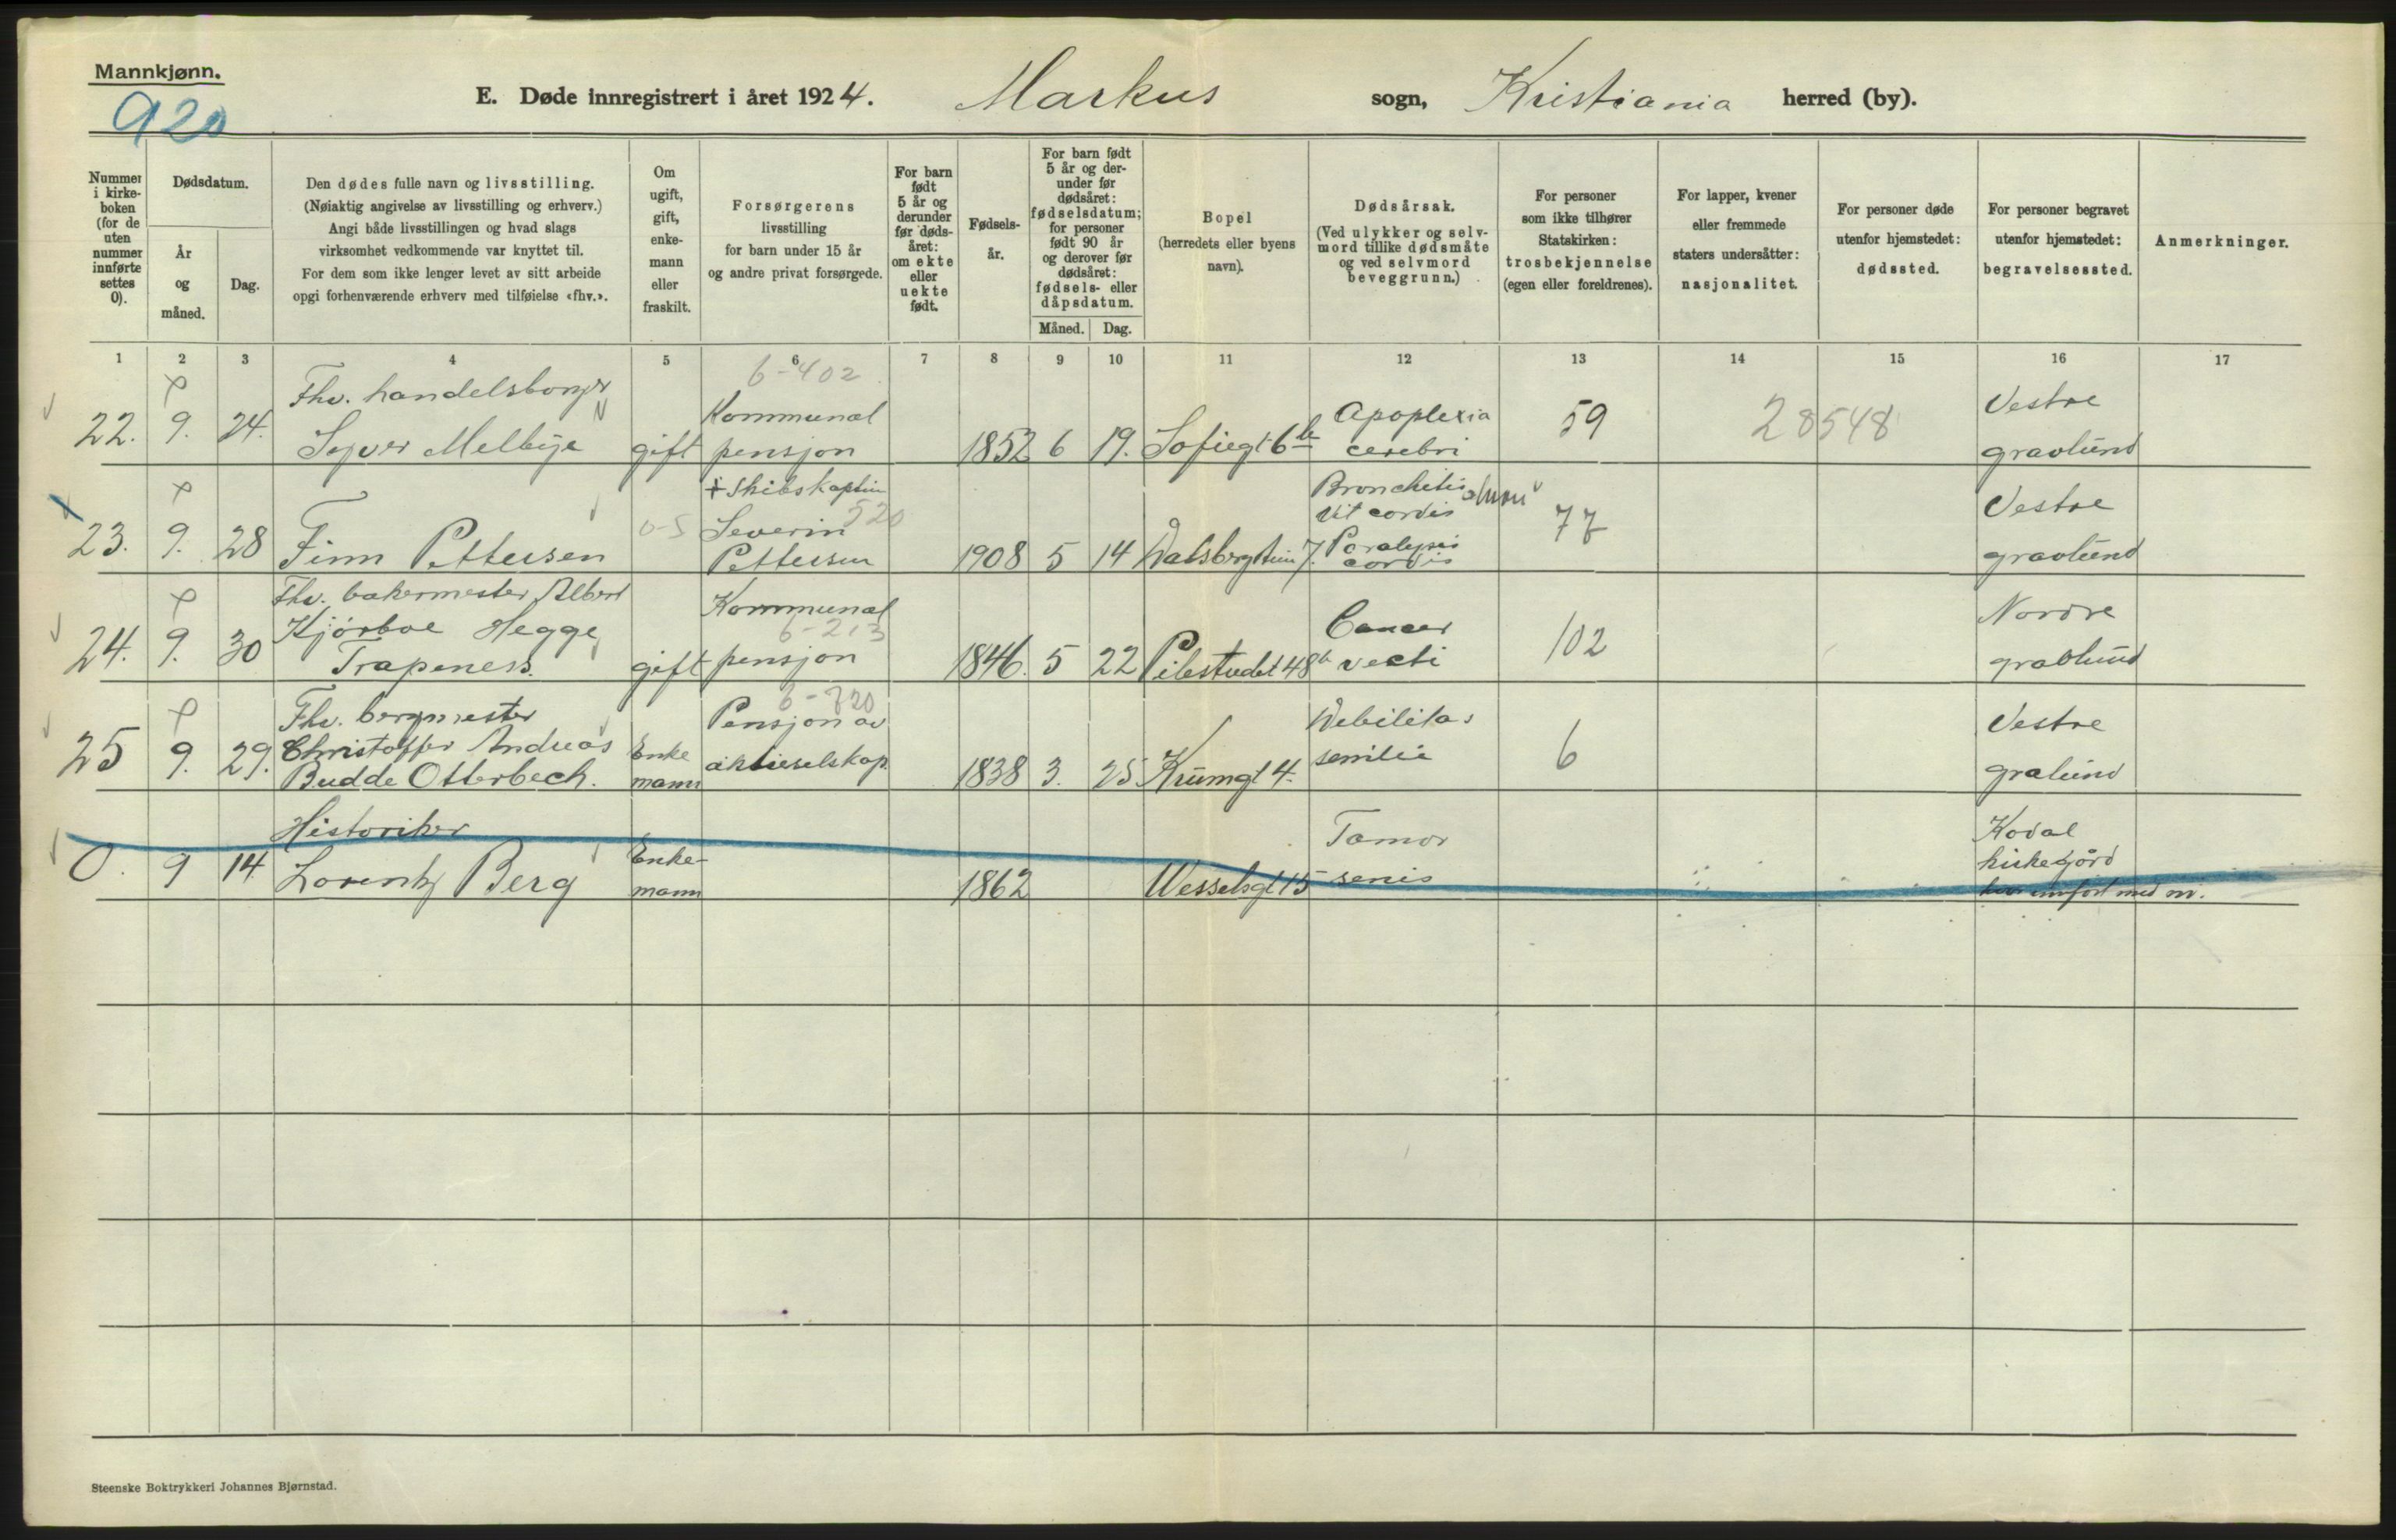 Mannkjønn.
920
E. Døde innregistrert i året 1924. Markus sogn, Kristiania herred (by).
Nummer i kirke-boken (for de uten nummer innførte settes 0).
Dødsdatum.
År og måned.
Dag.
Den dødes fulle navn og livsstilling.
(Nøiaktig angivelse av livsstilling og erhverv.)
Angi både livsstillingen og hvad slags
virksomhet vedkommende var knyttet til.
For dem som ikke lenger levet av sitt arbeide
opgi forhenværende erhverv med tilføielse «fhv.».
Om ugift, gift, enke-mann eller fraskilt.
Forsørgerens
livsstilling
for barn under 15 år
og andre privat forsørgede.
For barn født 5 år og derunder før døds-året: om ekte eller uekte født.
Fødsels-år.
For barn født 5 år og der-under før dødsåret: fødselsdatum; for personer født 90 år og derover før dødsåret: fødsels- eller dåpsdatum.
Måned. Dag.
Bopel
(herredets eller byens
navn).
Dødsårsak.
(Ved ulykker og selv-
mord tillike dødsmåte
og ved selvmord
beveggrunn.)
For personer
som ikke tilhører
Statskirken:
trosbekjennelse
(egen eller foreldrenes).
For lapper, kvener
eller fremmede
staters undersåtter:
nasjonalitet.
For personer døde
utenfor hjemstedet:
dødssted.
For personer begravet
utenfor hjemstedet:
begravelsessted.
Anmerkninger.
1 2 3 4 5 6 7 8 9 10 11 12 13 14 15 16 17
6-402
Fhv. handelsborger Kommunal Apoplexia 59 28548 Vestre
22. 9. 24. Syver Melbye gift pensjon 1852 6 19. Sofiegt 6b cerebri gravlund
+ Skibskaptein Bronchitis Vestre
520
Vit cordis
23. 9. 28 Finn Pettersen 0-5 Severin Pettersen 1908 5 14 Dalsbergstien 7. Paralysis cordis 77 gravlund
Fhv. bakermester Albert Kommunal Cancer Nordre
Kjørboe Hegge 6-213
24. 9. 30 Trapeness. gift pensjon 1846. 5 22 Pilestredet 48b recti 102 gravlund
6-720
Fhv. bergmester Pensjon av Debilitas Vestre
25 9. 29. Christoffer Andreas Budde Otterbech. Enke mann aktieselskap. 1838 3. 25 Krumgt 4. senilis 6 gralund
Historiker Tomor Koval
kirkegård
0. 9 14 Lorentz Berg Enke-mann 1862 Wesselsgt 15 senis innført med nr.
Steenske Boktrykkeri Johannes Bjørnstad.